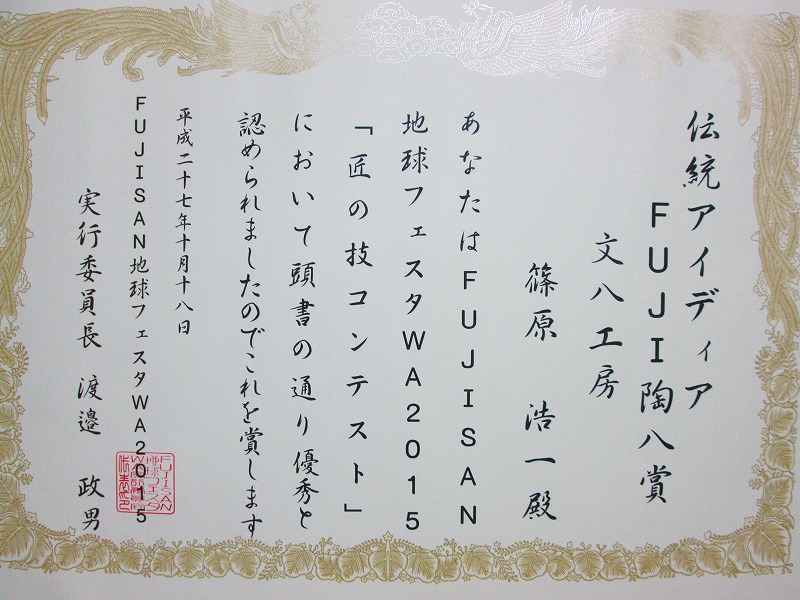 伝統アイディア
FUJI陶八賞
文八工房
篠原 浩一殿
あなたはFUJISAN
地球フェスタWA2015
「匠の技コンテスト」
において頭書の通り優秀と
認められましたのでこれを賞します
平成二十七年十月十八日
FUJISAN地球フェスタWA2015
実行委員長 渡邉 政男